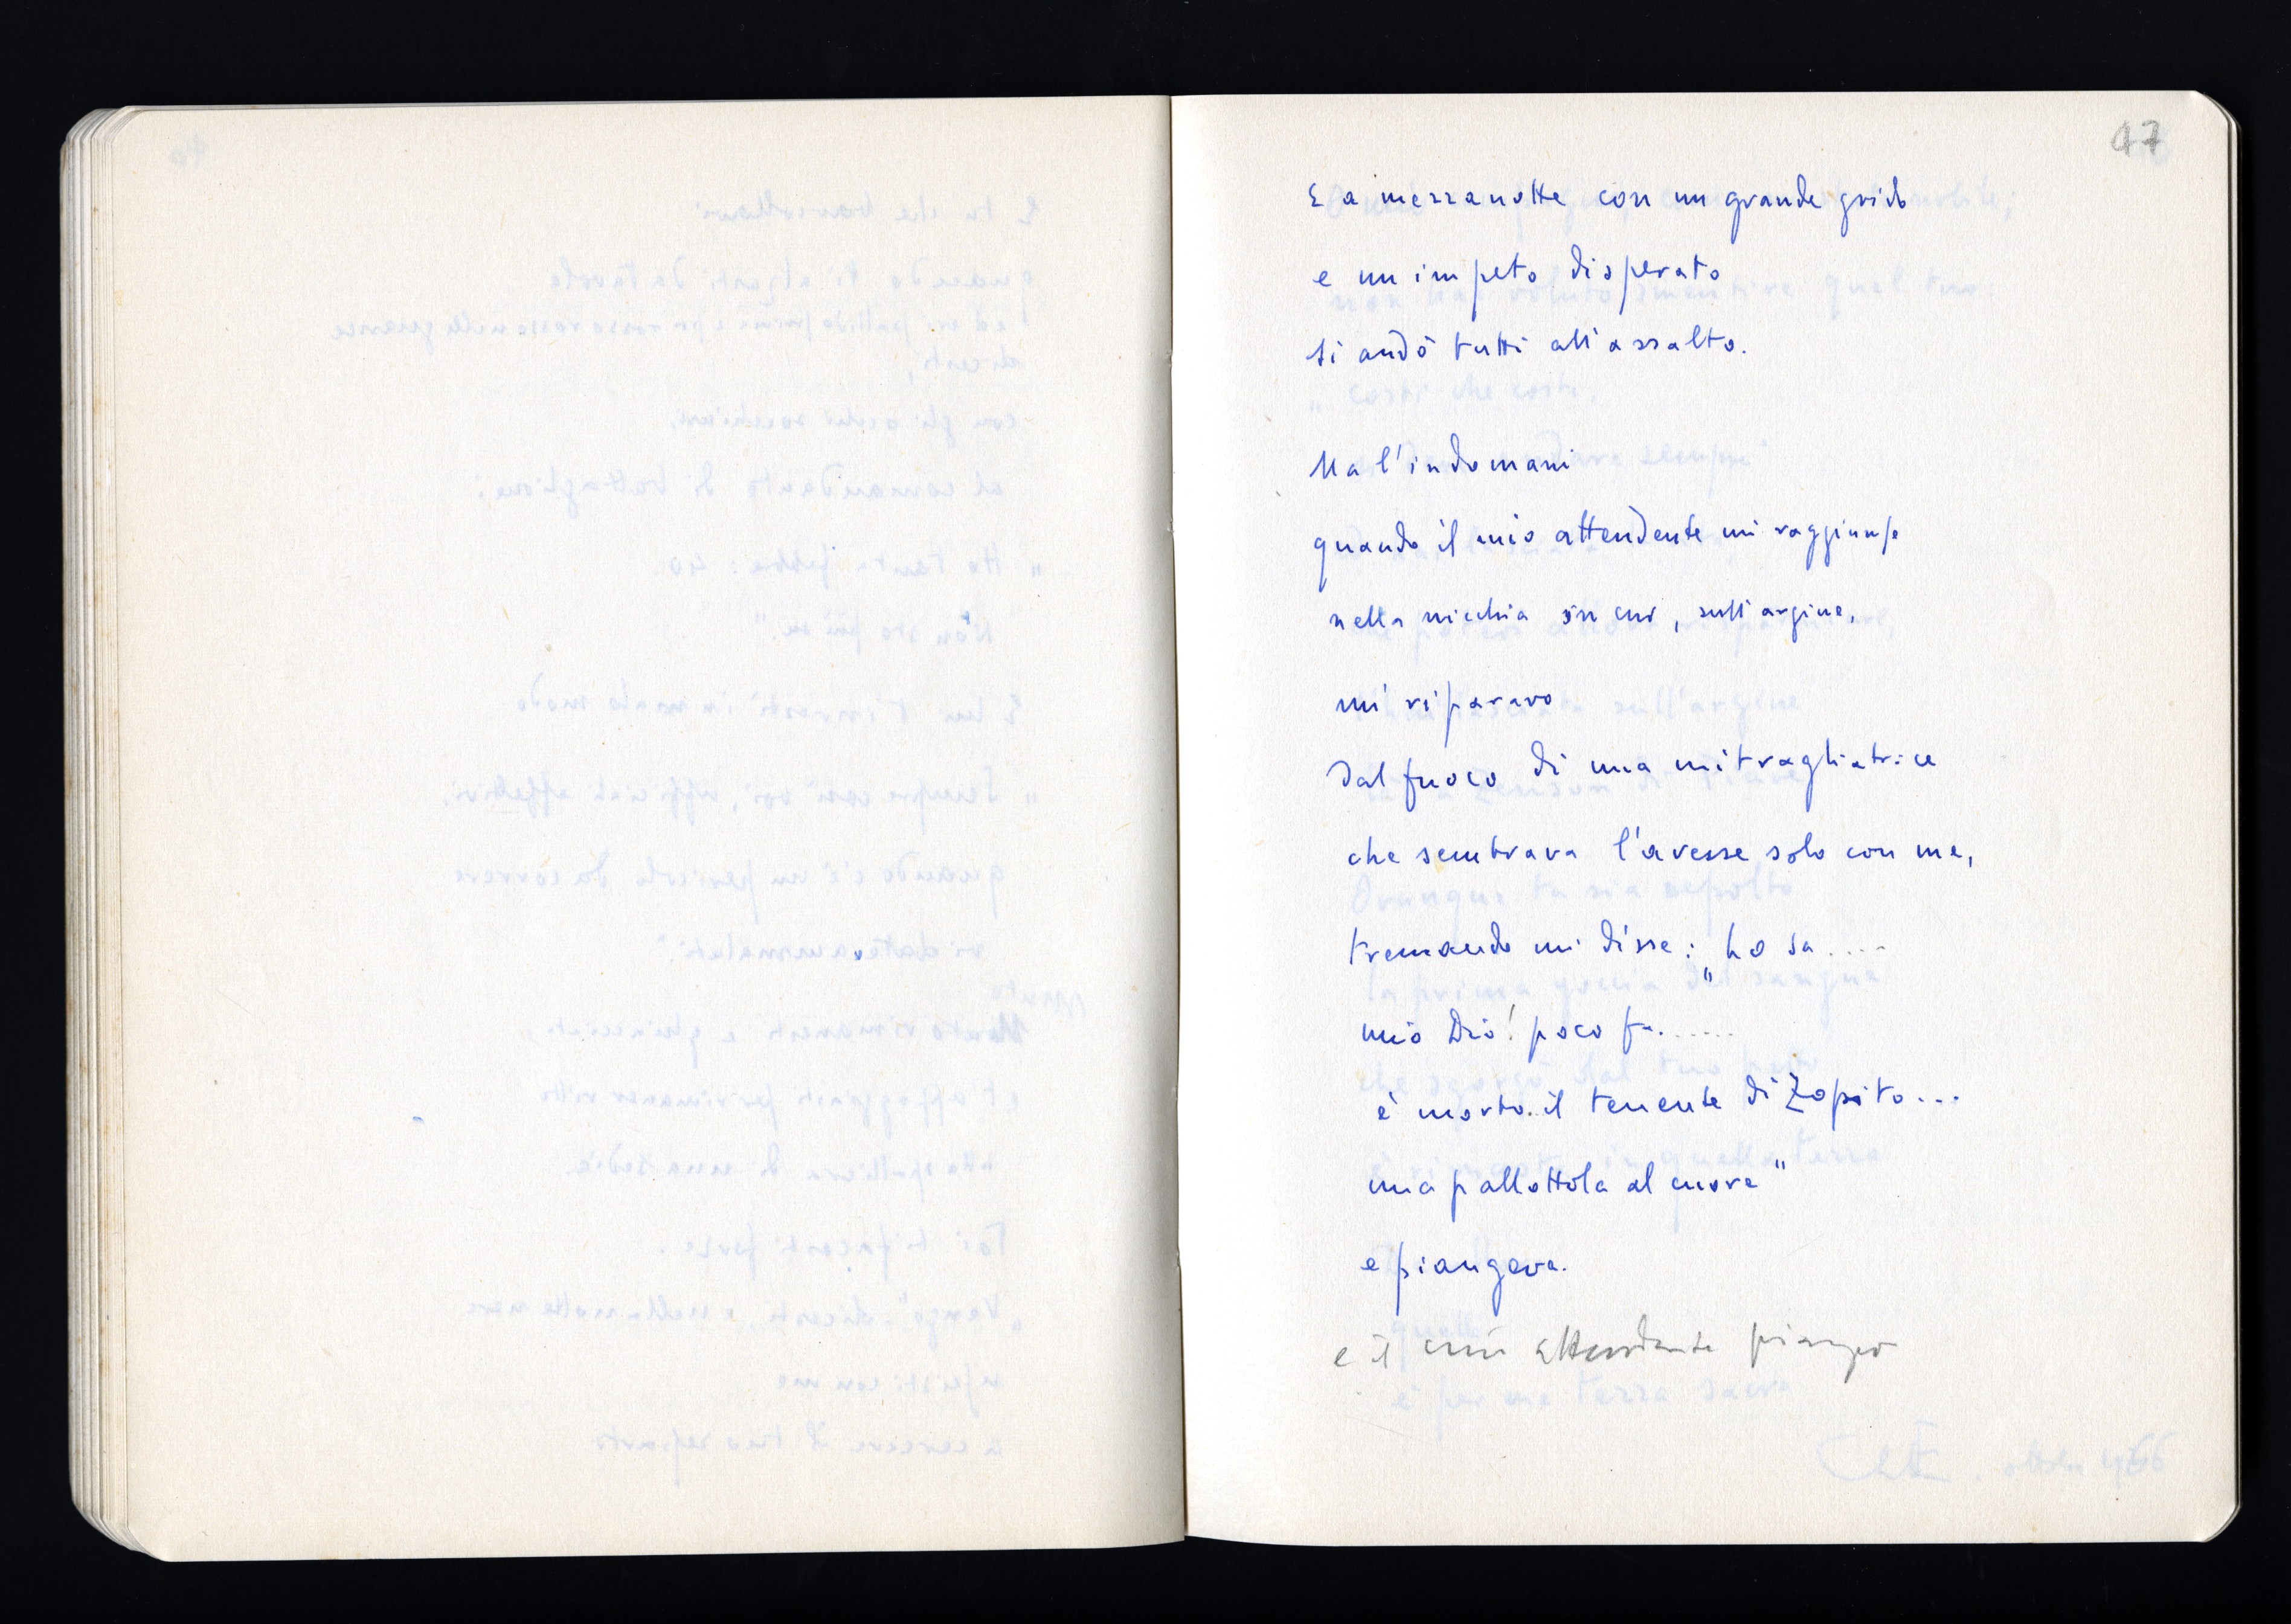 47
E a mezzanotte con un grande grido
e un impeto disperato
si andò tutti all'assalto.
Ma l'indomani
quando il mio attendente mi raggiunse
nella nicchia in cui, sull'argine,
mi riparavo
dal fuoco di una mitragliatrice
che sembrava l'avesse solo con me,
tremando mi disse: „ho sa....
mio Dio! poco fa......
è morto il tenente di Zopito...
una pallottola al cuore"
e piangeva.
e il mio attendente